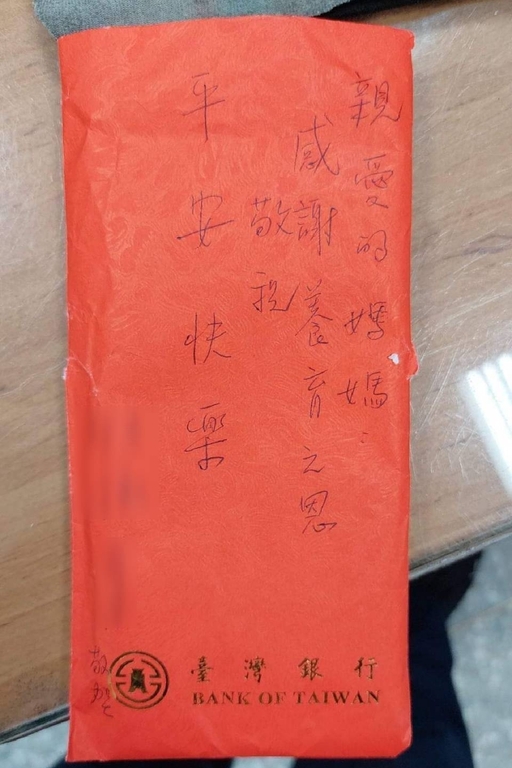 親愛的媽媽：
感謝養育之恩
敬祝
平安快樂
敬筆
臺灣銀行
BANK OF TAIWAN